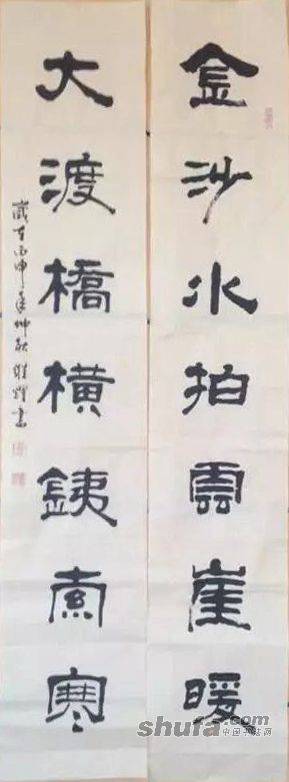 金沙水拍雲崖暖
大渡橋橫銕索寒
歲在丙申年仲秋書
shufa.com
中国书法网